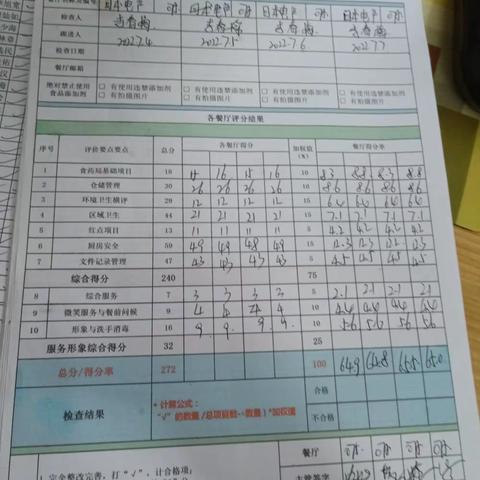 日本电产 日本电产 日本电产 日本电产
检查人
跟进人
检查日期 2022.7.4 2022.7.5 2022.7.6 2022.7.7
餐厅邮箱
绝对禁止使用食品添加剂 □ 有使用违禁添加剂 □ 有使用违禁添加剂 □ 有使用违禁添加剂 □ 有使用违禁添加剂
□ 有拍摄图片 □ 有拍摄图片 □ 有拍摄图片 □ 有拍摄图片
各餐厅评分结果
序号 评价要点要点 总分 各餐厅得分 加权值(%) 餐厅得分率
1 食药局基础项目 18 15 16 15 16 10 8.3 8.8 8.3 8.8
2 仓储管理 30 26 26 26 26 10 8.6 8.6 8.6 8.6
3 环境卫生横评 29 12 12 12 12 15 6.4 6.4 6.4 6.4
4 区域卫生 44 21 21 21 21 15 7.1 7.1 7.1 7.1
5 红点项目 13 11 11 11 11 5 4.2 4.2 4.2 4.2
6 厨房安全 59 49 49 48 49 15 12.3 12.3 12.2 12.3
7 文件记录管理 47 43 43 43 43 5 4.5 4.5 4.5 4.5
综合得分 240 75
8 综合服务 7 3 3 3 3 5 2.1 2.1 2.1 2.1
9 微笑服务与餐前问候 9 4 4 4 4 10 4.4 4.4 4.4 4.4
10 形象与洗手消毒 16 9 9 9 9 10 5.6 5.6 5.6 5.6
服务形象综合得分 32 25
总分/得分率 272 100 64.9 64.8 65.5 65.0
检查结果
* 计算公式：
"√" 的数量/总项目数--数量）*加权值
合格
不合格
餐厅
1.完全整改完善，打"√"，计合格项；
主管签字